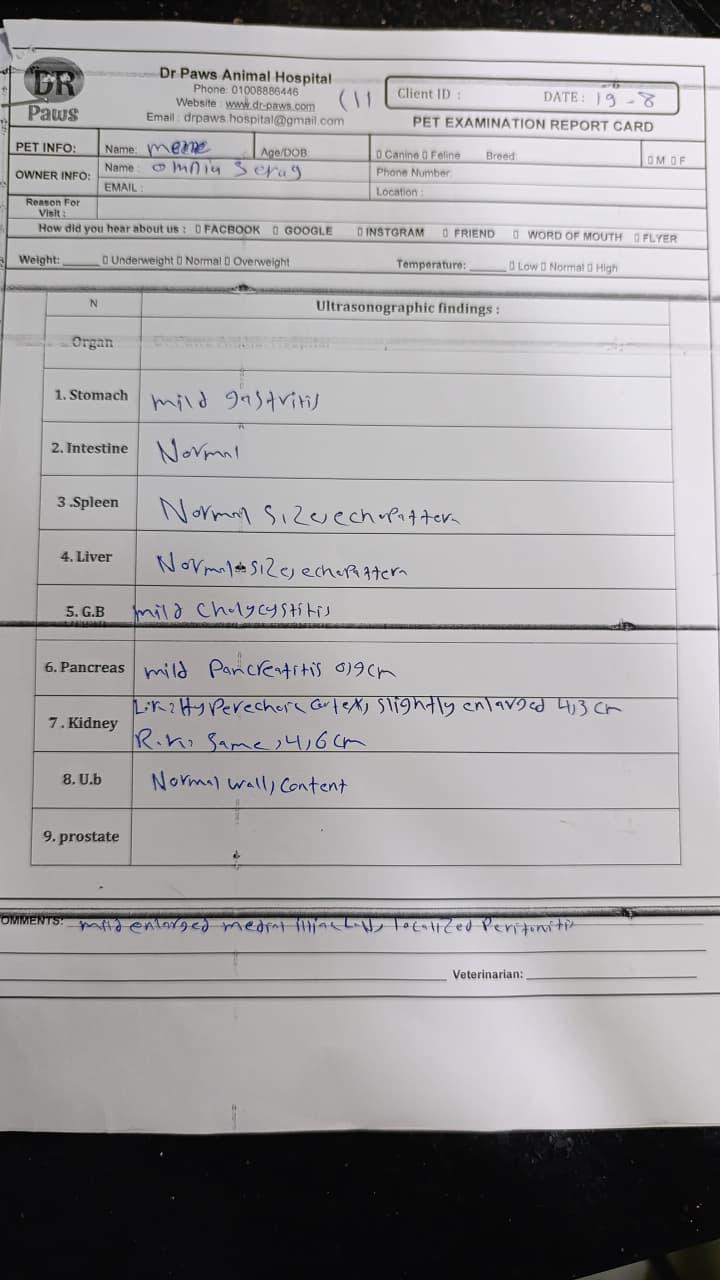 DR
Paws
Dr Paws Animal Hospital
Phone: 01008886446
Website : www.dr-paws.com
Email : drpaws.hospital@gmail.com
Client ID :
DATE : 19 - 8
PET EXAMINATION REPORT CARD
PET INFO: Name: meme Age/DOB: Canine Feline Breed: M F
OWNER INFO: Name : omnia Serag Phone Number:
EMAIL : Location :
Reason For Visit :
How did you hear about us : FACBOOK GOOGLE INSTGRAM FRIEND WORD OF MOUTH FLYER
Weight: Underweight Normal Overweight Temperature: Low Normal High
N Ultrasonographic findings :
Organ
1. Stomach mild gastritis
2. Intestine Normal
3 .Spleen Normal size, echopattern
4. Liver Normal size, echopattern
5. G.B mild Cholycystitis
6. Pancreas mild Pancreatitis 0,9 cm
7 . Kidney L.K: Hyperechoic Cortex, slightly enlarged 4,3 cm
R.K: same, 4,6 cm
8. U.b Normal wall, Content
9. prostate
OMMENTS: mild enlarged medial localized Peritonitis
Veterinarian: